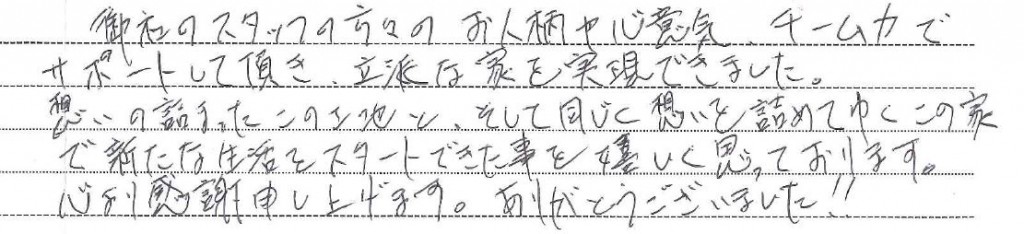 御社のスタッフの方々のお人柄や心意気、チーム力で
サポートして頂き、立派な家を実現できました。
想いの詰まったこの土地と、そして同じく想いを詰めてゆくこの家
で新たな生活をスタートできた事を嬉しく思っております。
心より感謝申し上げます。ありがとうございました!!